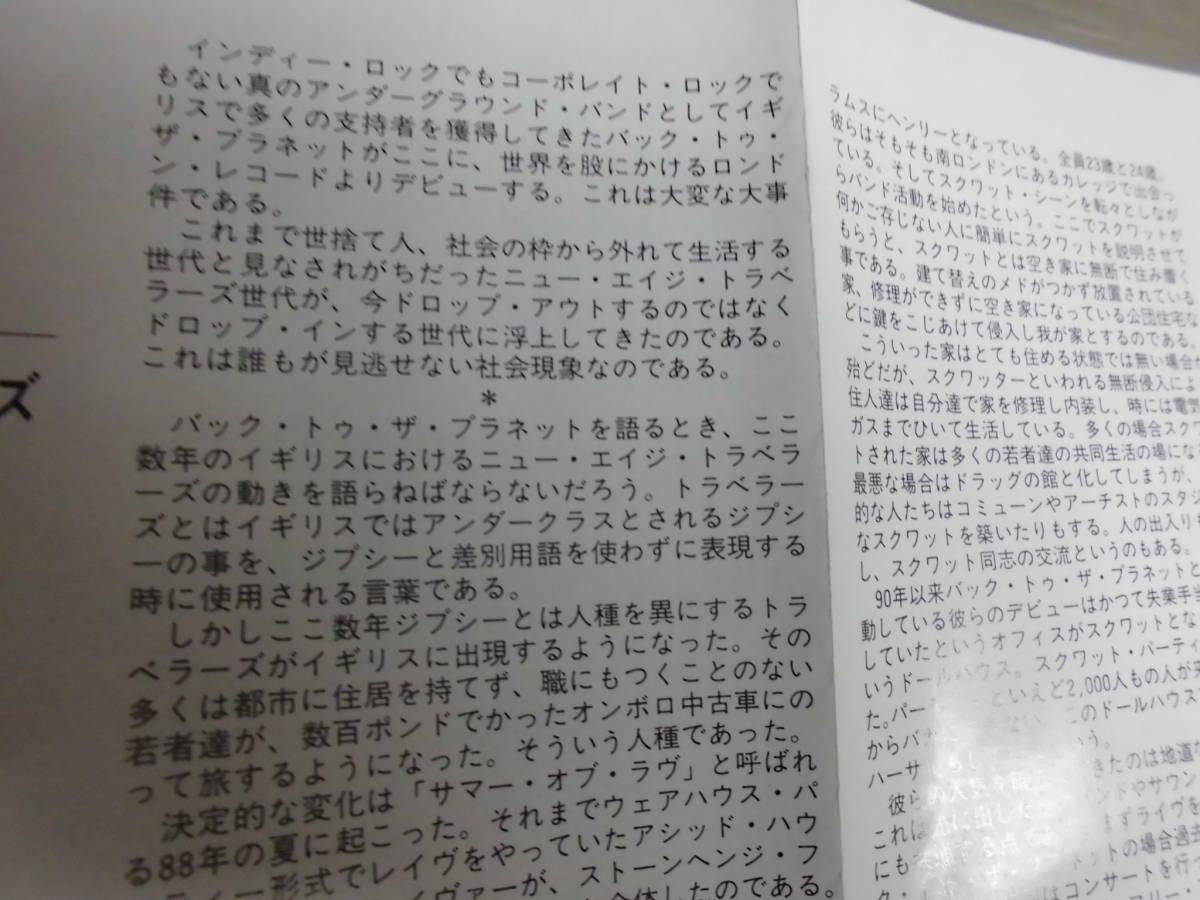 ズ
インディー・ロックでもコーポレイト・ロックで
もない真のアンダーグラウンド・バンドとしてイギ
リスで多くの支持者を獲得してきたバック・トゥ・
ザ・プラネットがここに、世界を股にかけるロンド
ン・レコードよりデビューする。これは大変な大事
件である。
これまで世捨て人、社会の枠から外れて生活する
世代と見なされがちだったニュー・エイジ・トラベ
ラーズ世代が、今ドロップ・アウトするのではなく
ドロップ・インする世代に浮上してきたのである。
これは誰もが見逃せない社会現象なのである。
*
バック・トゥ・ザ・プラネットを語るとき、ここ
数年のイギリスにおけるニュー・エイジ・トラベラ
ーズの動きを語らねばならないだろう。トラベラー
ズとはイギリスではアンダークラスとされるジプシ
ーの事を、ジプシーと差別用語を使わずに表現する
時に使用される言葉である。
しかしここ数年ジプシーとは人種を異にするトラ
ベラーズがイギリスに出現するようになった。その
多くは都市に住居を持てず、職にもつくことのない
若者達が、数百ポンドでかったオンボロ中古車にの
って旅するようになった。そういう人種であった。
決定的な変化は「サマー・オブ・ラヴ」と呼ばれ
る88年の夏に起こった。それまでウェアハウス・パ
ティー形式でレイヴをやっていたアシッド・ハウ
イヴァーが、ストーンヘンジ・フ
合体したのである。
ラムスにヘンリーとなっている。全員23歳と24歳。
彼らはそもそも南ロンドンにあるカレッジで出会っ
ている。そしてスクワット・シーンを転々としなが
らバンド活動を始めたという。ここでスクワットが
何かご存じない人に簡単にスクワットを説明させて
もらうと、スクワットとは空き家に無断で住み着く
事である。建て替えのメドがつかず放置されている
家、修理ができずに空き家になっている公団住宅な
どに鍵をこじあけて侵入し我が家とするのである。
こういった家はとても住める状態では無い場合が
殆どだが、スクワッターといわれる無断侵入によ
住人達は自分達で家を修理し内装し、時には電気
ガスまでひいて生活している。多くの場合スクワ
トされた家は多くの若者達の共同生活の場になる
最悪な場合はドラッグの館と化してしまうが、
的な人たちはコミューンやアーチストのスタジ
なスクワットを築いたりもする。人の出入り
し、スクワット同志の交流というのもある。
90年以来バック・トゥ・ザ・プラネットと
動している彼らのデビューはかつて失業手当
していたというオフィスがスクワットとな
いうドールハウス。スクワット・パーティ
た。パー といえど2,000人もの人が
このドールハウス
から
ハーサ きたのは地道な
彼ら ンドやサウン
これは まずライヴを
にも ネットの場合過去
ク・ はコンサートを行
フリー・